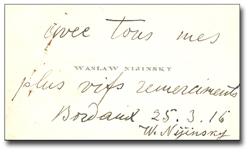 avec tous mes
WASLAW NIJINSKY
plus vifs remerciments
Bordeaux 25.3.16
W. Nijinsky